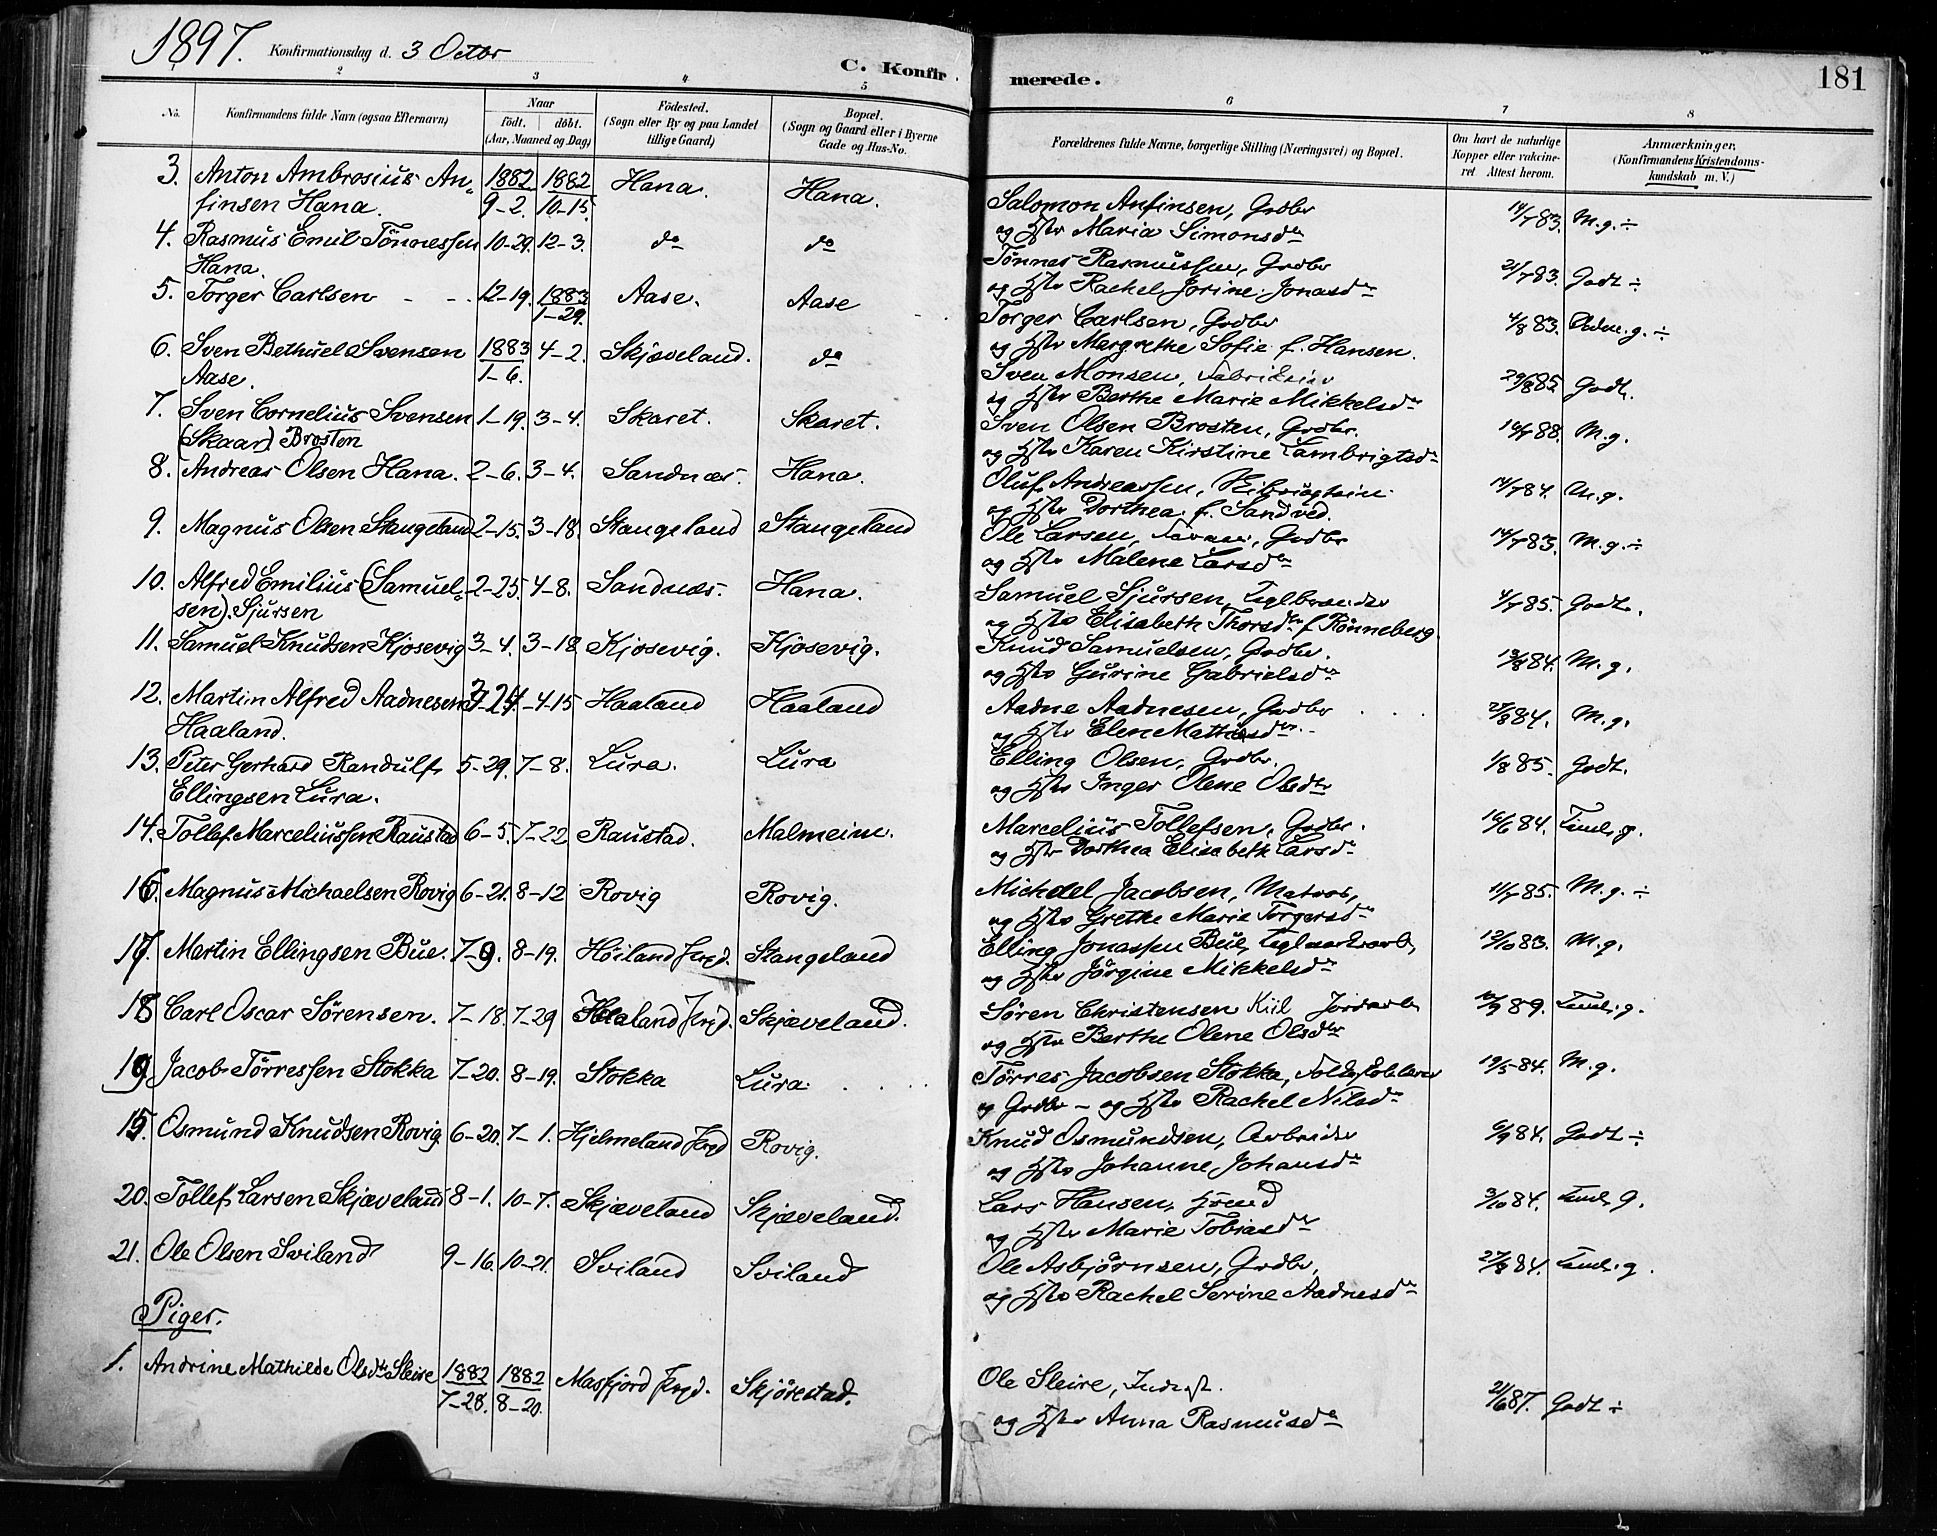 1897. Konfirmationsdag d. 3 Octbr
C. Konfirmerede.
181
2 3 4 5 6 7 8
No. Konfirmandens fulde Navn (ogsaa Efternavn)
Naar födt. döbt. (Aar, Maaned og Dag)
Födested. (Sogn eller By og paa Landet tillige Gaard)
Bopœl. (Sogn og Gaard eller i Byerne Gade og Hus-No.
Forœldrenes fulde Navne, borgerlige Stilling (Næringsvei) og Bopœl.
Om havt de naturlige Kopper eller vaccineret Attest herom.
Anmærkninger, (Konfirmandens Kristendomskundskab m. V.)
3. Anton Ambrosius An- 1882 1882 Hana. Hana. Salomon Anfinsen, Grdbr 14/7 83. M.g. ÷
finsen Hana. 9-2. 10-15. og Hstr Maria Simonsdtr
4. Rasmus Emil Tönnessen 10-29. 12-3. do do Tönnes Rasmussen, Grdbr 21/7 83. Godt ÷
Hana. og Hstr Rachel Jorine Jonasdtr
5. Torger Carlsen - - 12-19. 1883 Aase. Aase Torger Carlsen, Grdbr 4/8 83. ÷
1-29. og Hstr Margrethe Sofie f. Hansen.
6. Sven Bethuel Svensen 1883 4-2. Skjæveland. do Sven Monsen, 29/8 85. Godt.
Aase. 1-6. og Hstr Berthe Marie Mikkelsdtr
7. Sven Cornelius Svensen 1-19. 3-4. Skaret. Skaret. Sven Olsen Brosten, Grdbr. 88. M.g.
(Skaar) Brosten og Hstr Karen Kirstine Lambrigtsdtr
8. Andreas Olsen Hana. 2-6. 3-4. Sandnæs. Hana. Oluf Andreassen, 14/7 84. M.g.
og Hstr Dorthea f. Sandved.
9. Magnus Olsen Stangeland 2-15. 3-18. Stangeland Stangeland Ole Larsen, Grdbr 14/7 83. M.g. ÷
og Hstr Malene Larsdtr
10. Alfred Emilius (Samuel- 2-25. 4-8. Sandnæs. Hana. Samuel Sjursen, Teglbrænder 4/7 85. Godt.
sen) Sjursen og Hstr Elisabeth Thorsdtr f. Rönneberg
11. Samuel Knudsen Kjosevig 3-4. 3-18 Kjosevig. Kjosevig. Knud Samuelsen, Grdbr. 84. M.g.
og Hstr Gurine Gabrielsdtr
12. Martin Alfred Aadnesen 3-24. 4-15 Haaland Haaland Aadne Aadnesen, Grdbr 27/8 84. M.g.
Haaland. og Hstr Elen Mathiasdtr.
13. Peter Gerhard Randulf 5-29. 7-8. Lura. Lura Elling Olsen, Grdbr. 1/8 85. Godt.
Ellingsen Lura. og Hstr Inger Olene Olsdtr
14. Tollef Marceliussen Raustad 6-5. 7-22 Raustad. Malmeim. Marcelius Tollefsen, Grdbr. 16/6 84. Teml. g.
og Hstr Dorthea Elisabeth Larsdtr
16. Magnus Michaelsen Rovig 6-21. 8-12 Rovig Rovig. Michael Jacobsen, Matros, 11/7 85. M.g. ÷
og Hstr Grethe Marie Torgersdtr
17. Martin Ellingsen Bue. 7-9. 8-19. Höiland Prgd. Stangeland Elling Jonassen Bue, 12/10 83. M.g.
og Hstr Jörgine Mikkelsdtr
18 Carl Oscar Sörensen. 7-18. 7-29 Haaland Prgd. Skjæveland. Sören Christensen Kiil Jordarb 89. Teml. g.
og Hstr Berthe Olene Olsdtr
19. Jacob Törressen Stokka 7-20. 8-19. Stokka Lura. Törres Jacobsen Stokka, 19/5 84. M.g.
og Grdbr - og Hstr Rachel Nilsdtr
15. Osmund Knudsen Rovig. 6-20. 7-1. Hjelmeland Prgd Rovig. Knud Osmundsen, Arbeider 6/9 84. Godt ÷
og Hstr Johanne Johansdtr
20. Tollef Larsen Skjæveland 8-1. 10-7. Skjæveland Skjæveland. Lars Hansen, 3/10 84. Teml. g.
og Hstr Marie Tobiasdtr
21. Ole Olsen Sviland 9-16. 10-21. Sviland Sviland Ole Asbjörnsen, Grdbr, 27/8 84. Teml. g.
og Hstr Rachel Serine Aadnesdtr
Piger.
1. Andrine Mathilde Olsdtr Sleire 1882 1882 Masfjord Prgd. Skjörestad. Ole Sleire, Inderst. 21/6 87. Godt ÷
7-28. 8-20. og Hstr Anna Rasmusdtr